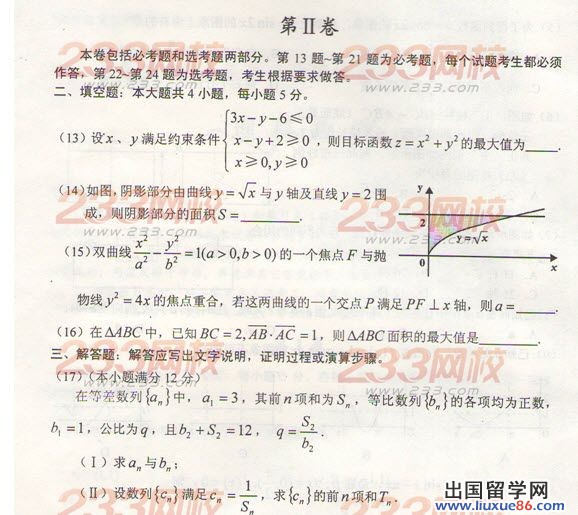 第Ⅱ卷
本卷包括必考题和选考题两部分。第 13 题~第 21 题为必考题，每个试题考生都必须
作答，第 22~第 24 题为选考题，考生根据要求做答。
二、填空题：本大题共 4 小题，每小题 5 分。
(13) 设 x、y 满足约束条件 { 3x-y-6≤0
x-y+2≥0
x≥0,y≥0 ，则目标函数 z=x²+y² 的最大值为____.
(14) 如图，阴影部分由曲线 y=√x 与 y 轴及直线 y=2 围
成，则阴影部分的面积 S=______.
y
2
y=√x
0
x
(15) 双曲线 x²/a²-y²/b²=1(a>0,b>0) 的一个焦点 F 与抛
物线 y²=4x 的焦点重合，若这两曲线的一个交点 P 满足 PF⊥x 轴，则 a=____.
(16) 在 ΔABC 中，已知 BC=2, AB·AC=1，则 ΔABC 面积的最大值是______.
三、解答题：解答应写出文字说明，证明过程或演算步骤。
(17) (本小题满分 12 分)
在等差数列{aₙ}中，a₁=3，其前 n 项和为 Sₙ，等比数列{bₙ}的各项均为正数，
b₁=1，公比为 q，且 b₂+S₂=12，q=S₂/b₂.
(Ⅰ) 求 aₙ 与 bₙ；
(Ⅱ) 设数列{cₙ}满足 cₙ=1/Sₙ，求{cₙ}的前 n 项和 Tₙ.
233网校
www.233.com
出国留学网
www.liuxue86.com